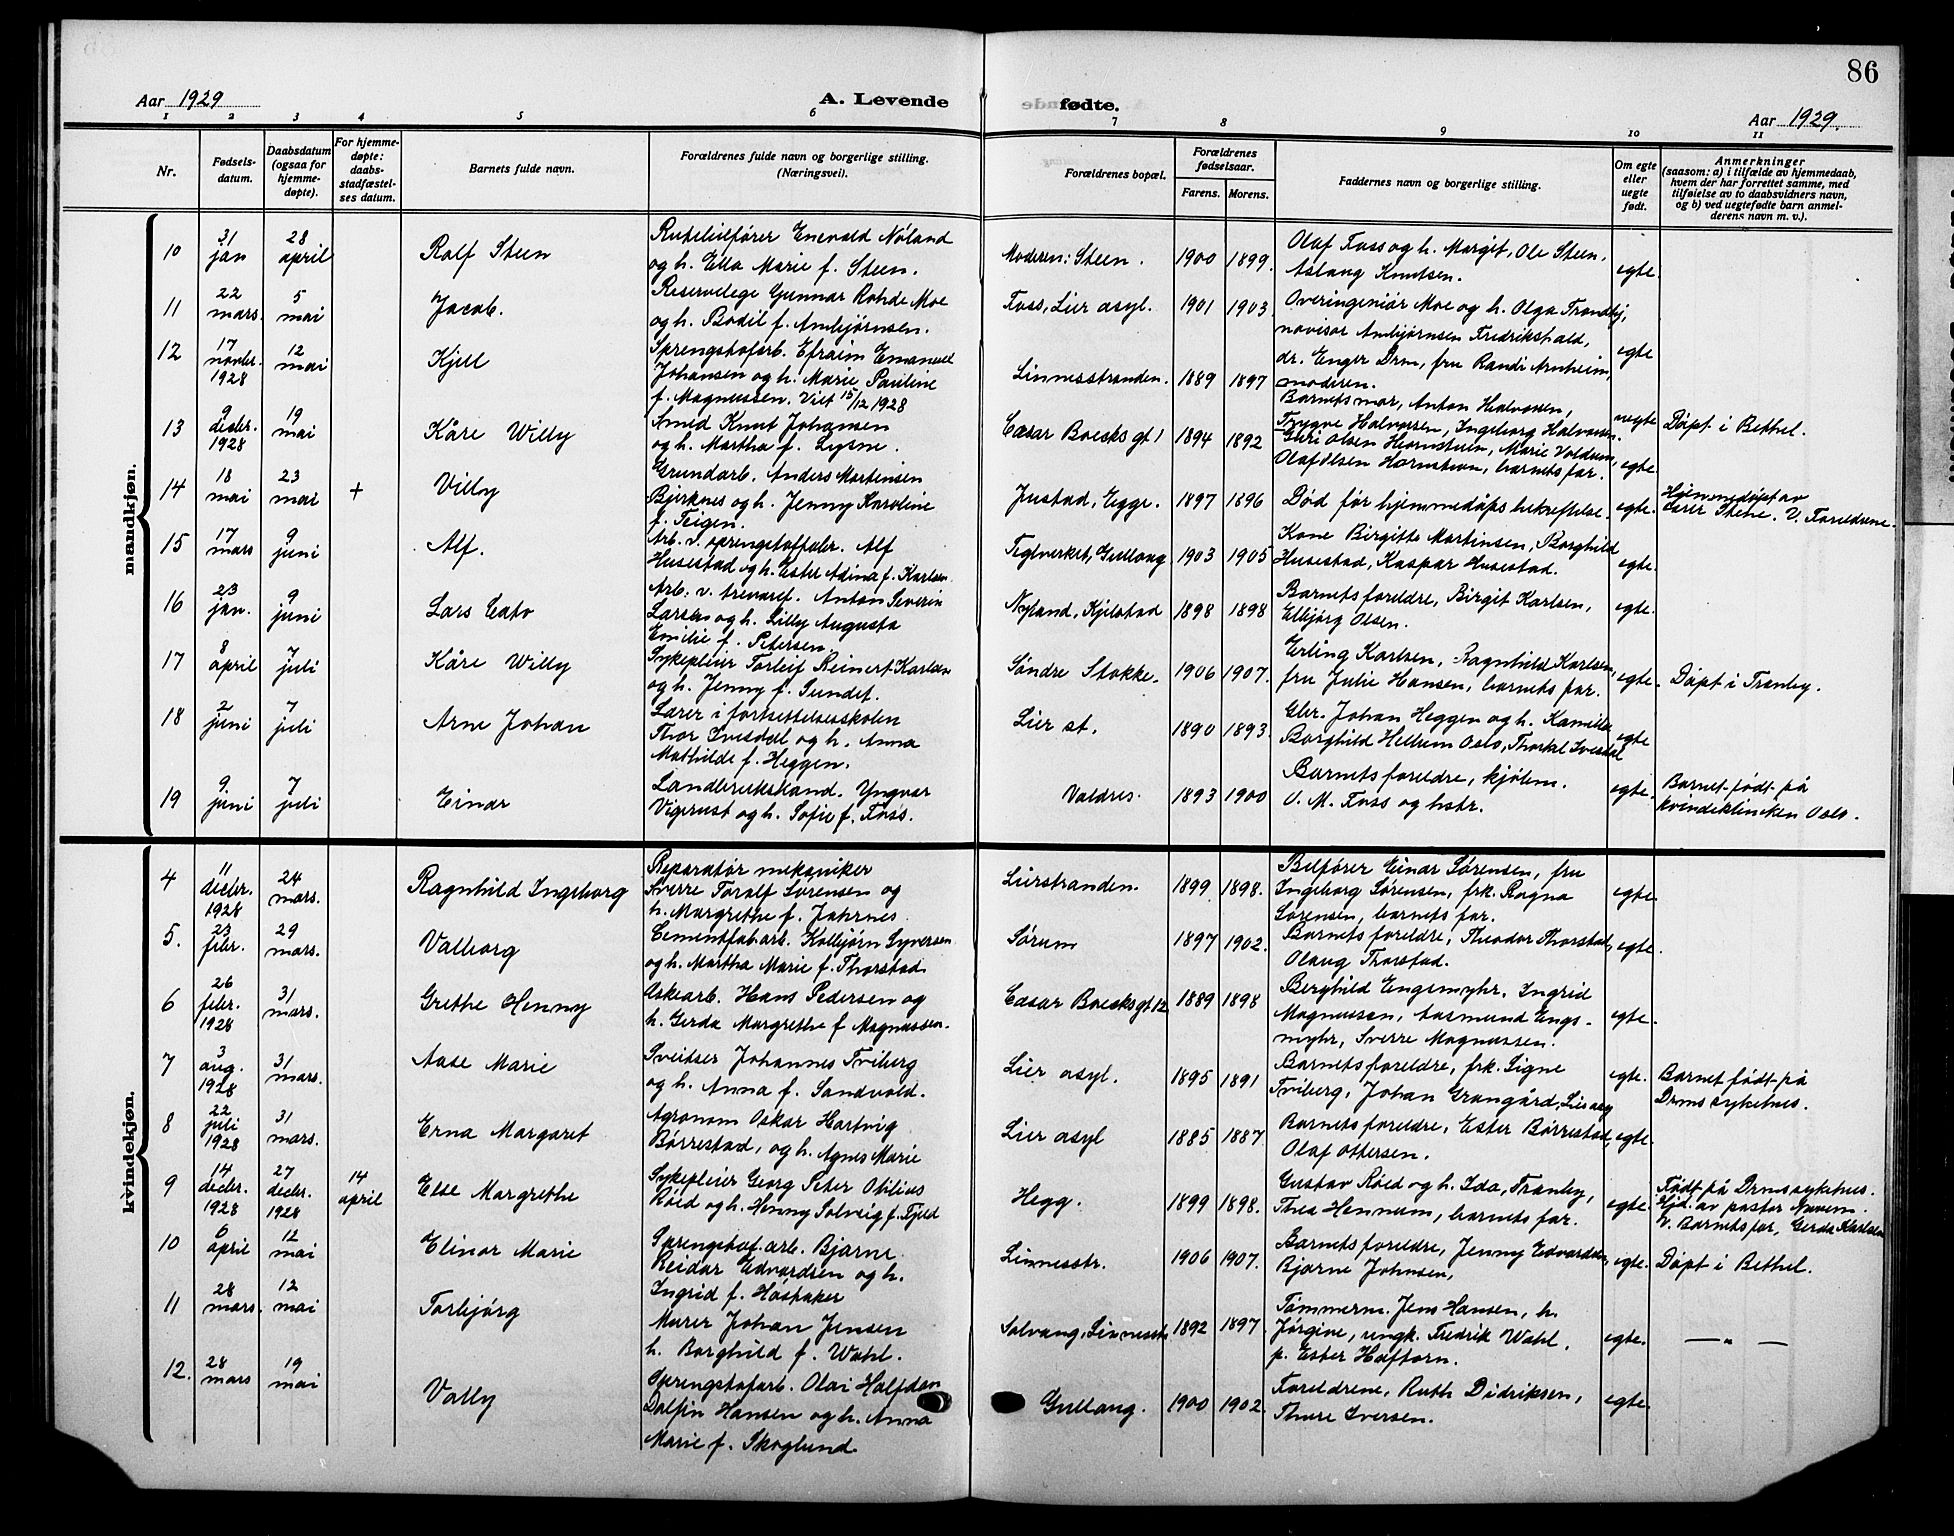 86
Aar 1929
A. Levende
fødte.
Aar 1929.
1 2 3 4 5 6 7 8 9 10 11
Nr.
Fødsels-
datum.
Daabsdatum
(ogsaa for
hjemme-
døpte).
For hjemme-
døpte:
daabs-
stadfæstel-
ses datum.
Barnets fulde navn.
Forældrenes fulde navn og borgerlige stilling.
(Næringsvei).
Forældrenes bopæl.
Forældrenes
fødselsaar.
Farens. Morens.
Faddernes navn og borgerlige stilling.
Om egte
eller
uegte
født.
Anmerkninger
(saasom: a) i tilfælde av hjemmedaab,
hvem der har forrettet samme, med
tilføielse av to daabsvidners navn,
og b) ved uegtefødte barn anmel-
derens navn m. v.).
mandkjøn.
10
31
jan
28
april
Rolf Steen
Rutebilfører Enevald Nøland
og h. Ella Marie f. Steen.
Moderen: Steen.
1900 1899.
Olaf Foss og h. Margit, Ole Steen,
Aslaug Knutsen.
egte.
11
22
mars.
5
mai
Jacob.
Reservelege Gunnar Rohde Moe
og h. Bodil f. Ambjørnsen.
Foss, Lier asyl.
1901 1903
Overingeniør Moe og h. Olga Tranby,
Ambjørnsen Fredrikshald,
dr. Enger Drm, fru Randi Arnheim,
moderen.
egte
12
17
novbr.
1928
12
mai
Kjell
Sprengstofarb. Efraim Emanuel
Johansen og h. Marie Pauline
f. Magnussen. Viet 15/12 1928
Linnesstranden.
1889 1897
Barnets mor, Anton Halvorsen,
Trygve Halvorsen, Ingeborg Halvorsen.
uegte
13
9
decbr.
1928
19
mai
Kåre Willy
Smed Knut Johansen
og h. Martha f. Lysne.
Cæsar Boecks gt 1
1894 1892
Guri Olsen Hornstuen, Marie Voldum,
Olaf Olsen Hornstuen, barnets far.
egte.
Døpt i Bethel.
14
18
mai
23
mai
+
Villy
Grundarb. Anders Martinsen
Bjerknes og h. Jenny Karoline
f. Teigen.
Justad, Egge.
1897 1896
Død før hjemmedåps bekreftelse.
egte.
Hjemmedøpt av
lærer Stene. V. Foreldrene.
15
17
mars
9
juni
Alf.
Arb. v. sprengstoffabr. Alf
Husestad og h. Ester Adina f. Karlsen.
Teglverket, Gullaug
1903 1905
Kone Birgitte Martinsen, Borghild
Husestad, Kaspar Husestad.
egte.
16
23
jan.
9
juni
Lars Cato
Arb. v. trevaref. Anton Severin
Larsen og h. Lilly Augusta
Emilie f. Petersen.
Nyland, Kjelstad
1898 1898
Barnets foreldre, Birgit Karlsen,
Ellbjørg Olsen.
egte.
17
8
april
7
juli
Kåre Willy
Sykepleier Torleif Reinert Karlsen
og h. Jenny f. Sundet.
Søndre Stokke.
1906 1907.
Erling Karlsen, Ragnhild Karlsen,
fru Julie Hansen, barnets far.
egte.
Døpt i Tranby.
18
2
juni
7
juli
Arne Johan
Lærer i fortsettelsesskolen
Thor Ivesdal og h. Anna
Mathilde f. Heggen.
Lier st.
1890 1893.
Gbr. Johan Heggen og h. Kamilla
Borghild Hellum Oslo, Thorkel Ivesdal
egte
19
9
juni
7
juli
Einar
Landbrukskand. Yngvar
Vigerust og h. Sofie f. Foss.
Valdres.
1893 1900
Barnets foreldre, kjøbm.
O. M. Foss og hstr.
egte.
Barnet født på
kvindeklinikken Oslo.
kvindekjøn.
4
11
decbr.
1928
24
mars.
Ragnhild Ingeborg
Reparatør mekaniker
Sverre Toralf Sørensen og
h. Margrethe f. Jahrnes.
Lierstranden.
1899 1898.
Bilfører Einar Sørensen, fru
Ingeborg Sørensen, frk. Ragna
Sørensen, barnets far.
egte.
5.
23
febr.
29
mars.
Valborg
Cementfab.arb. Kolbjørn Syversen
og h. Martha Marie f. Thorstad
Sørum
1897 1902.
Barnets foreldre, Theodor Thorstad,
Olaug Thorstad.
egte.
6
26
febr.
1928
31
mars.
Grethe Henny
Eskearb. Hans Pedersen og
h. Gerda Margrethe f Magnussen.
Cæsar Boecks gt 12
1889 1898
Berghild Engsmyhr, Ingrid
Magnussen, Aasmund Engs-
myhr, Sverre Magnussen.
egte.
7
3
aug.
1928
31
mars.
Aase Marie
Sveitser Johannes Tviberg
og h. Anna f. Sandvold.
Lier asyl.
1895 1891
Barnets foreldre, frk. Signe
Tviberg, Johan Grangård, Lier asyl
egte.
Barnet født på
Drms sykehus.
8
22
juli
1928
31
mars.
Erna Margaret
Agronom Oskar Hartvig
Børrestad, og h. Agnes Marie
Lier asyl
1885 1887
Barnets foreldre, Ester Børrestad,
Olaf Ottersen.
egte.
9
14
decbr.
1928
27
decbr.
1928
14
april
Else Margrethe
Sykepleier Georg Peter Obilius
Røed og h. Henny Solveig f. Fjeld
Hegg.
1899 1898.
Gustav Røed og h. Ida, Tranby,
Thea Hennum, barnets far.
egte.
Født på Drms sykehus.
Hjd. av pastor Navem.
V. Barnets far, Gerda Karlsen
10
6
april
12
mai
Elinor Marie
Sprengstof.arb. Bjarne
Reidar Edvardsen og h.
Ingrid f. Høstaker
Linnesstr.
1906 1907.
Barnets foreldre, Jenny Edvardsen,
Bjarne Johnsen,
egte.
Døpt i Bethel.
11
28
mars.
12
mai
Torbjørg
Murer Johan Jensen
h. Borghild f. Wahl.
Solvang, Linnesstr.
1892 1897.
Tømmerm. Jens Hansen, h.
Jørgine, ungk. Fredrik Wahl,
p. Ester Haftorn.
egte.
— „ —
12.
28
mars
19
mai
Vally
Sprengstofarb. Olai Halfdan
Dalfin Hansen og h. Anna
Marie f. Skoglund
Gullaug.
1900 1902.
Foreldrene, Ruth Didriksen,
Thure Iversen.
egte.